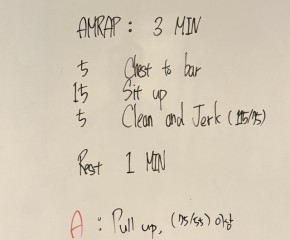 AMRAP : 3 MIN
5 Chest to bar
15 Sit up
5 Clean and Jerk (115/75)
Rest 1 MIN
A : Pull up, (75/55)